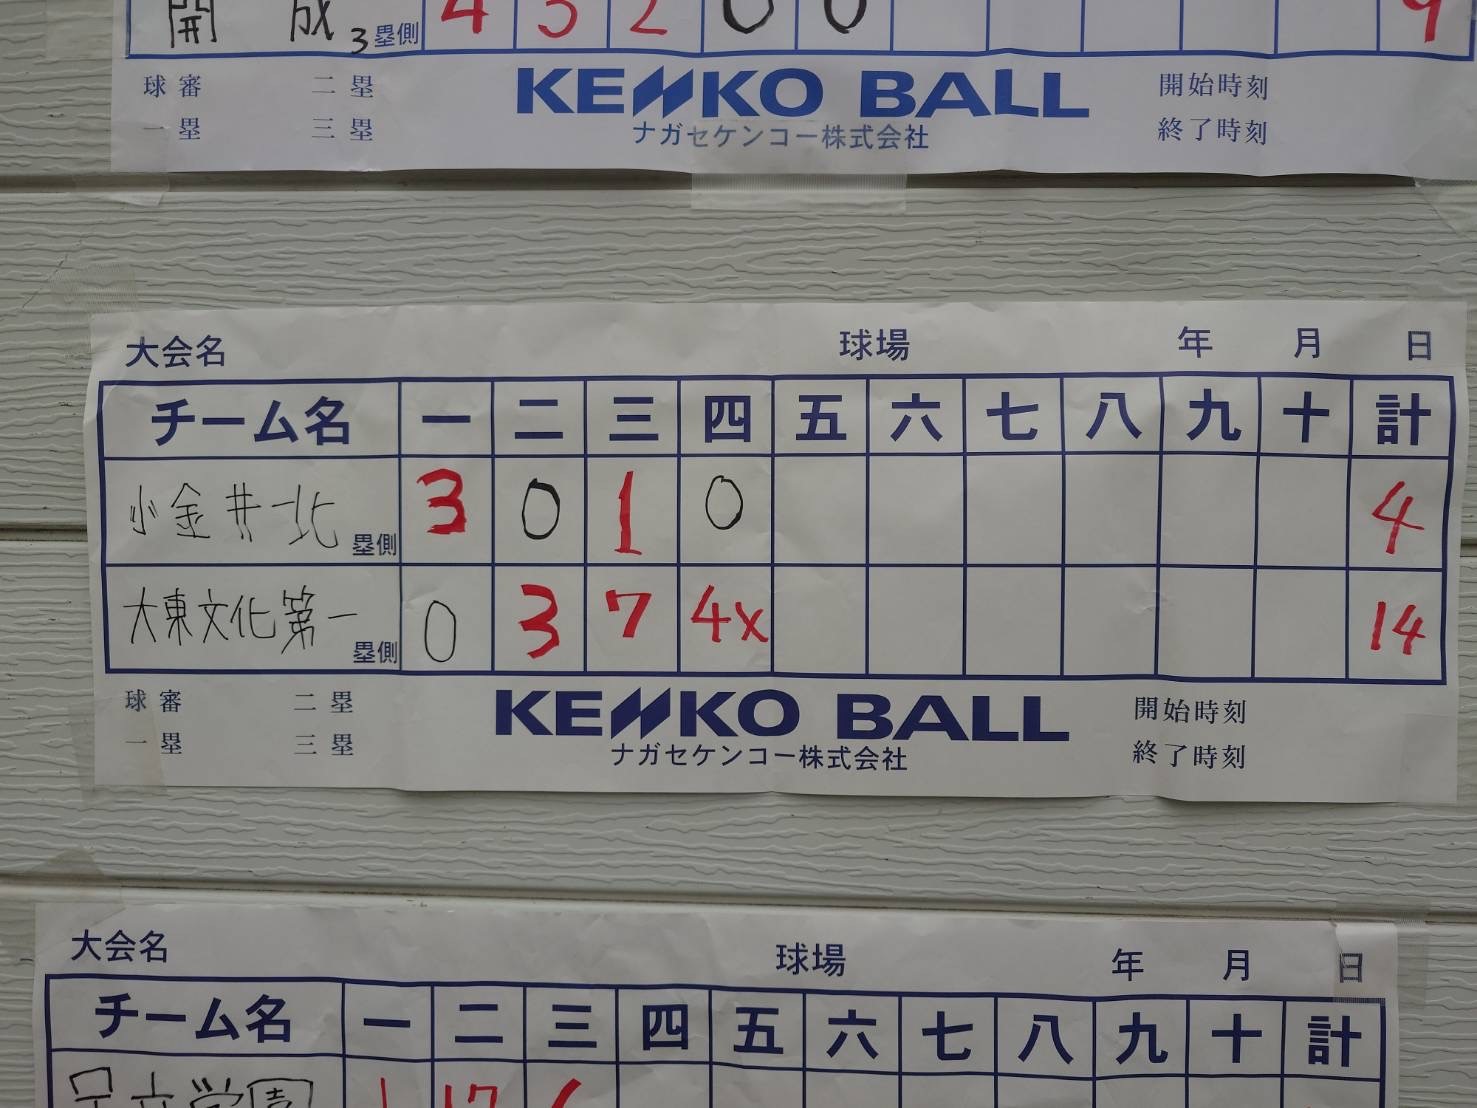 開成 3 塁側 4 3 2 0 0 9
球審 二塁 KENKO BALL 開始時刻
一塁 三塁 ナガセケンコー株式会社 終了時刻
大会名 球場 年 月 日
チーム名 一 二 三 四 五 六 七 八 九 十 計
小金井北 塁側 3 0 1 0 4
大東文化第一 塁側 0 3 7 4x 14
球審 二塁 KENKO BALL 開始時刻
一塁 三塁 ナガセケンコー株式会社 終了時刻
大会名 球場 年 月 日
チーム名 一 二 三 四 五 六 七 八 九 十 計
足立学園